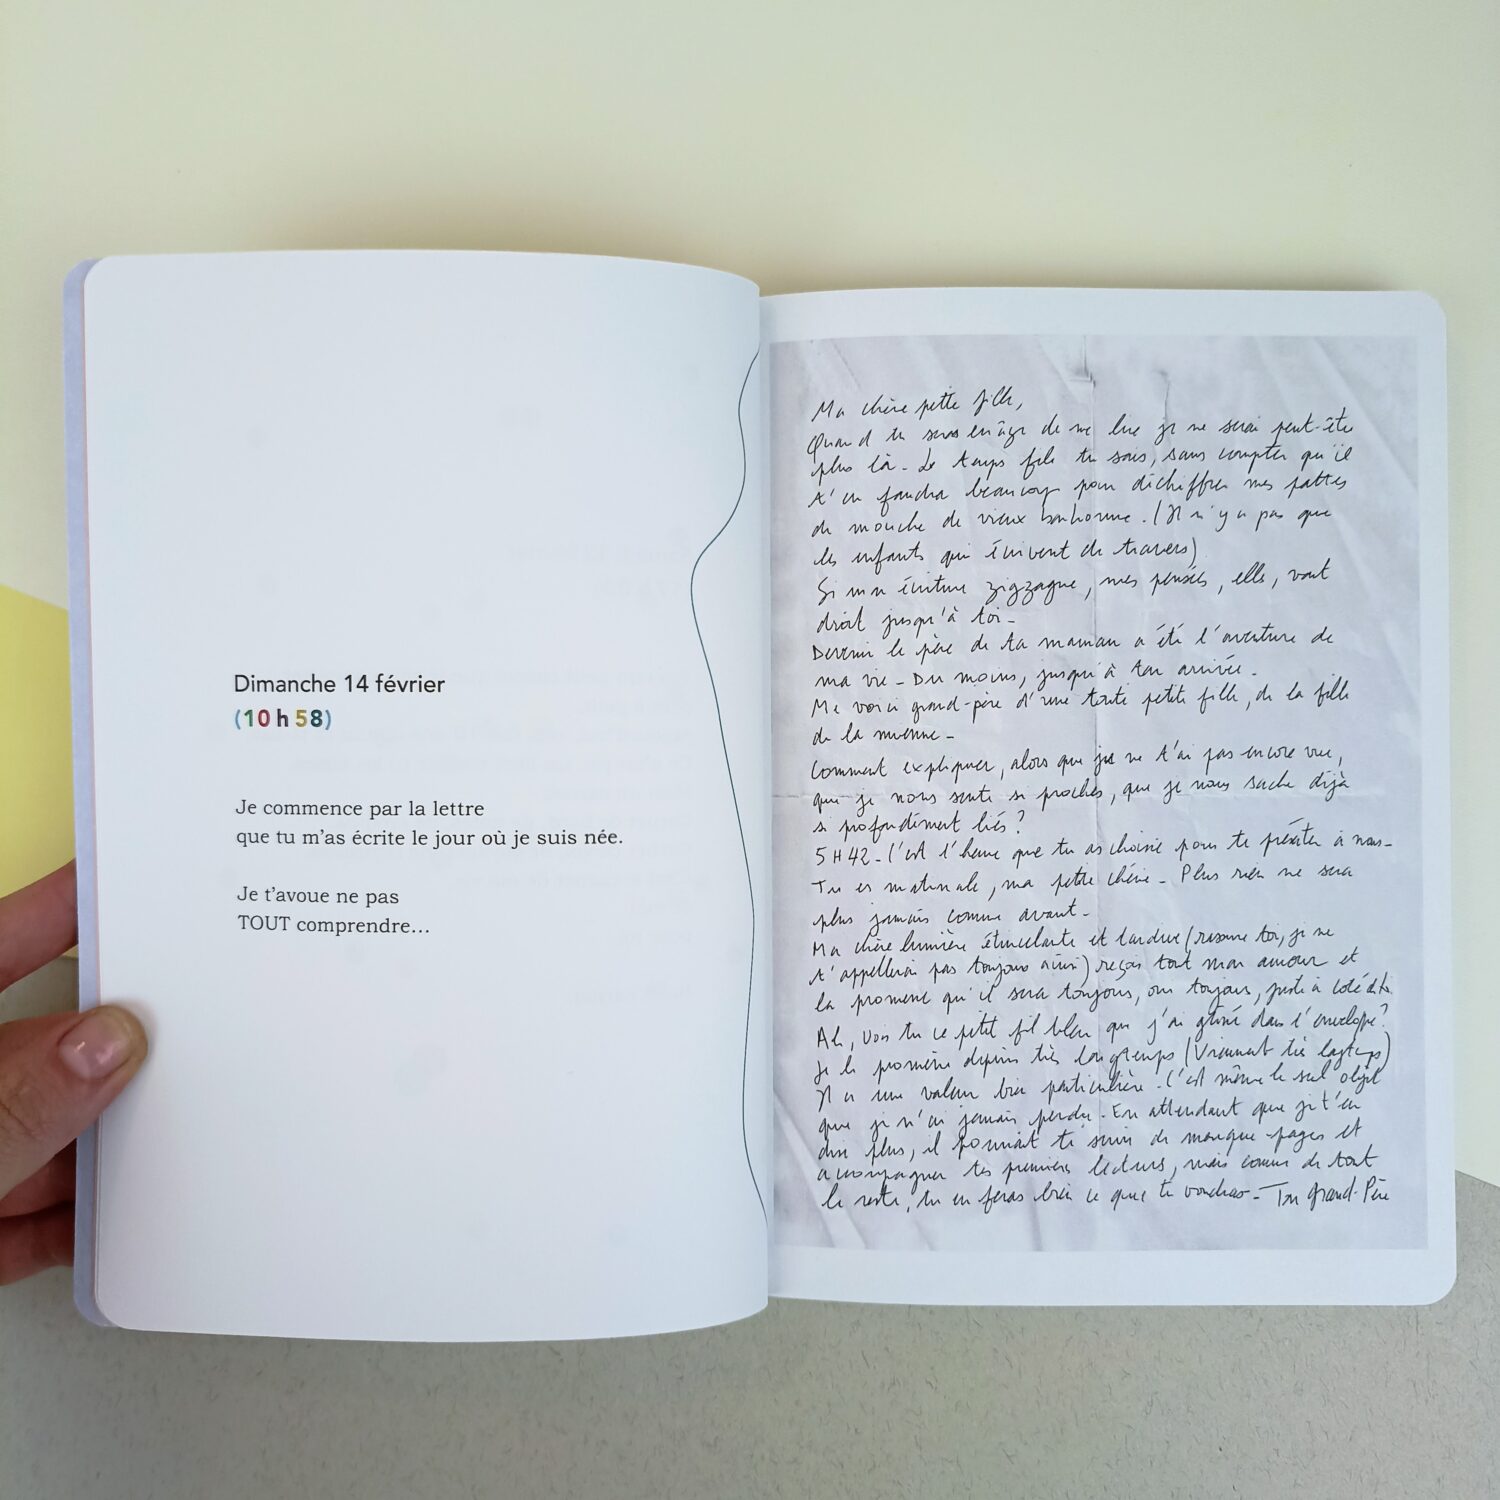 Dimanche 14 février
(10 h 58)
Je commence par la lettre
que tu m'as écrite le jour où je suis née.
Je t'avoue ne pas
TOUT comprendre...
Ma chère petite fille,
Quand tu seras en âge de me lire je ne serai peut-être
plus là - Le temps file tu sais, sans compter qu'il
t'en faudra beaucoup pour déchiffrer mes pattes
de mouche de vieux bonhomme. (Il n'y a pas que
les enfants qui écrivent de travers)
Si mon écriture zigzague, mes pensées, elle, vont
droit jusqu'à toi -
Devenir le père de ta maman a été l'aventure de
ma vie - Du moins, jusqu'à ton arrivée -
Me voici grand-père d'une toute petite fille, de la fille
de la mienne -
Comment expliquer, alors que je ne t'ai pas encore vue,
que je nous sente si proches, que je nous sache déjà
si profondément liés ?
5H42 - C'est l'heure que tu as choisie pour te présenter à nous -
Tu es matinale, ma petite chérie - Plus rien ne sera
plus jamais comme avant -
Ma chère lumière étincelante et tardive (rassure toi, je ne
t'appellerai pas toujours ainsi) reçois tout mon amour et
la promesse qu'il sera toujours, oui toujours, juste à côté de toi.
Ah, vois tu ce petit fil bleu que j'ai glissé dans l'enveloppe ?
Je le promène depuis très longtemps (Vraiment très longtemps)
Il a une valeur bien particulière. C'est même le seul objet
que je n'ai jamais perdu - En attendant que je t'en
dise plus, il pourrait te servir de marque-pages et
accompagner tes premières lectures, mais comme de tout
le reste, tu en feras bien ce que tu voudras - Ton Grand-Père